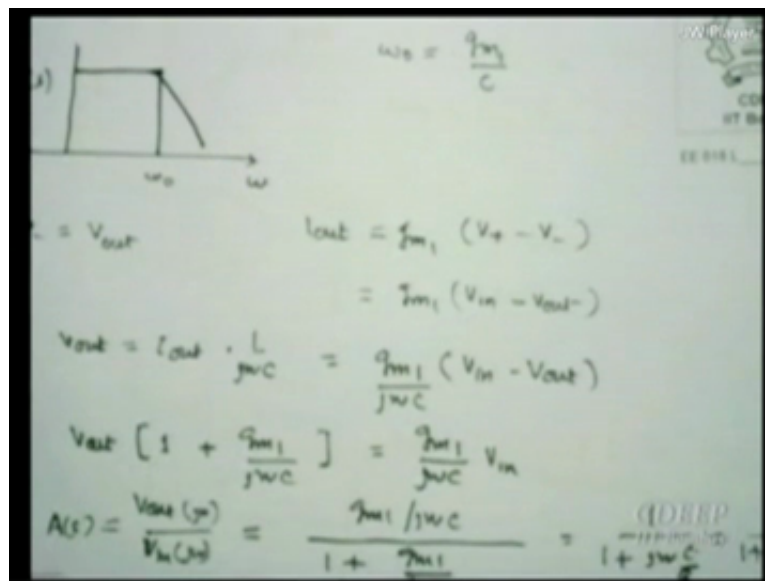 JW Player
ω₀ = gm₁ / C
ω₀ ω
= Vout
Iout = gm₁ (V+ − V−)
= gm₁ (Vin − Vout)
Vout = Iout · 1/jωC = gm₁/jωC (Vin − Vout)
Vout [1 + gm₁/jωC] = gm₁/jωC Vin
A(s) = Vout(jω)/Vin(jω) = gm₁/jωC / 1 + gm₁ =
CDEEP